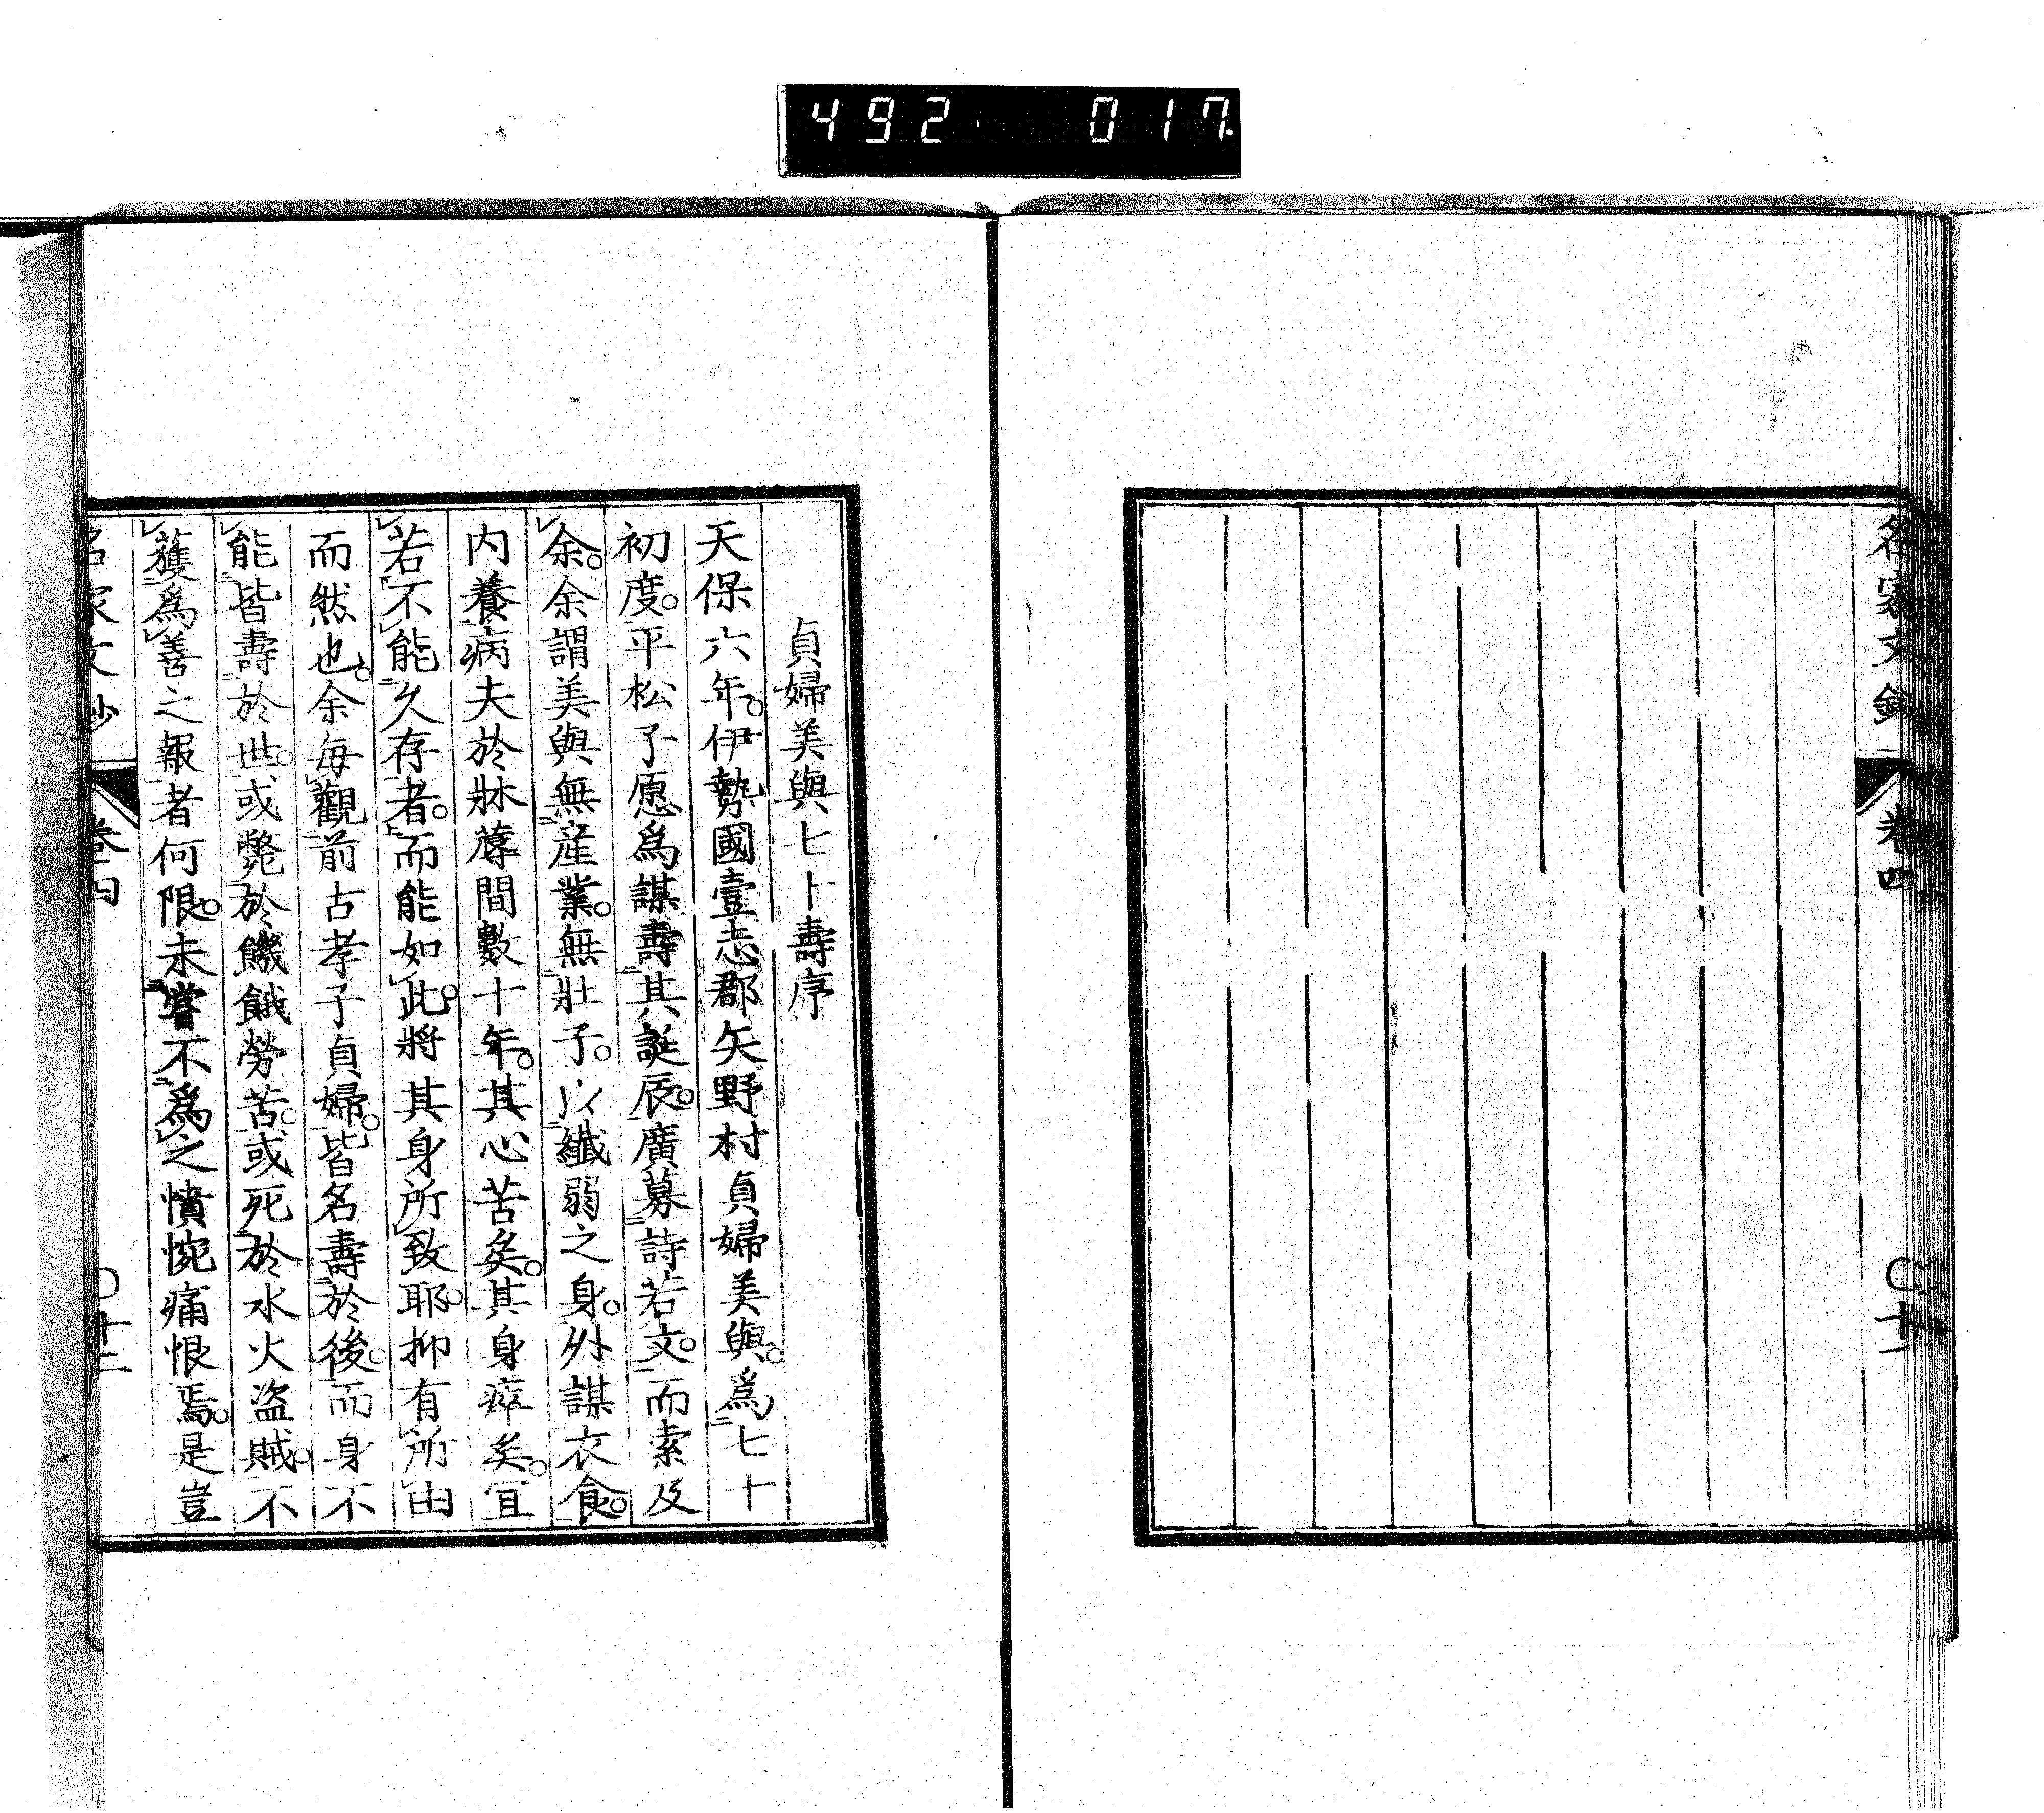 492 017
名家文鈔
卷四
〇十一
貞婦美與七十壽序
天保六年。伊勢國壹志郡矢野村貞婦美與。爲七十
初度。平松子愿爲謀壽其誕辰。廣募詩若文。而索及
余。余謂美與無產業。無壯子。以纖弱之身。外謀衣食。
内養病夫於牀蓐間數十年。其心苦矣。其身瘁矣。宜
若不能久存者。而能如此。將其身所致耶。抑有所由
而然也。余每觀前古孝子貞婦。皆名壽於後。而身不
能皆壽於世。或斃於饑餓勞苦。或死於水火盗賊。不
獲爲善之報者何限。未嘗不爲之憤惋痛恨焉。是豈
名家文鈔
卷四
〇十二